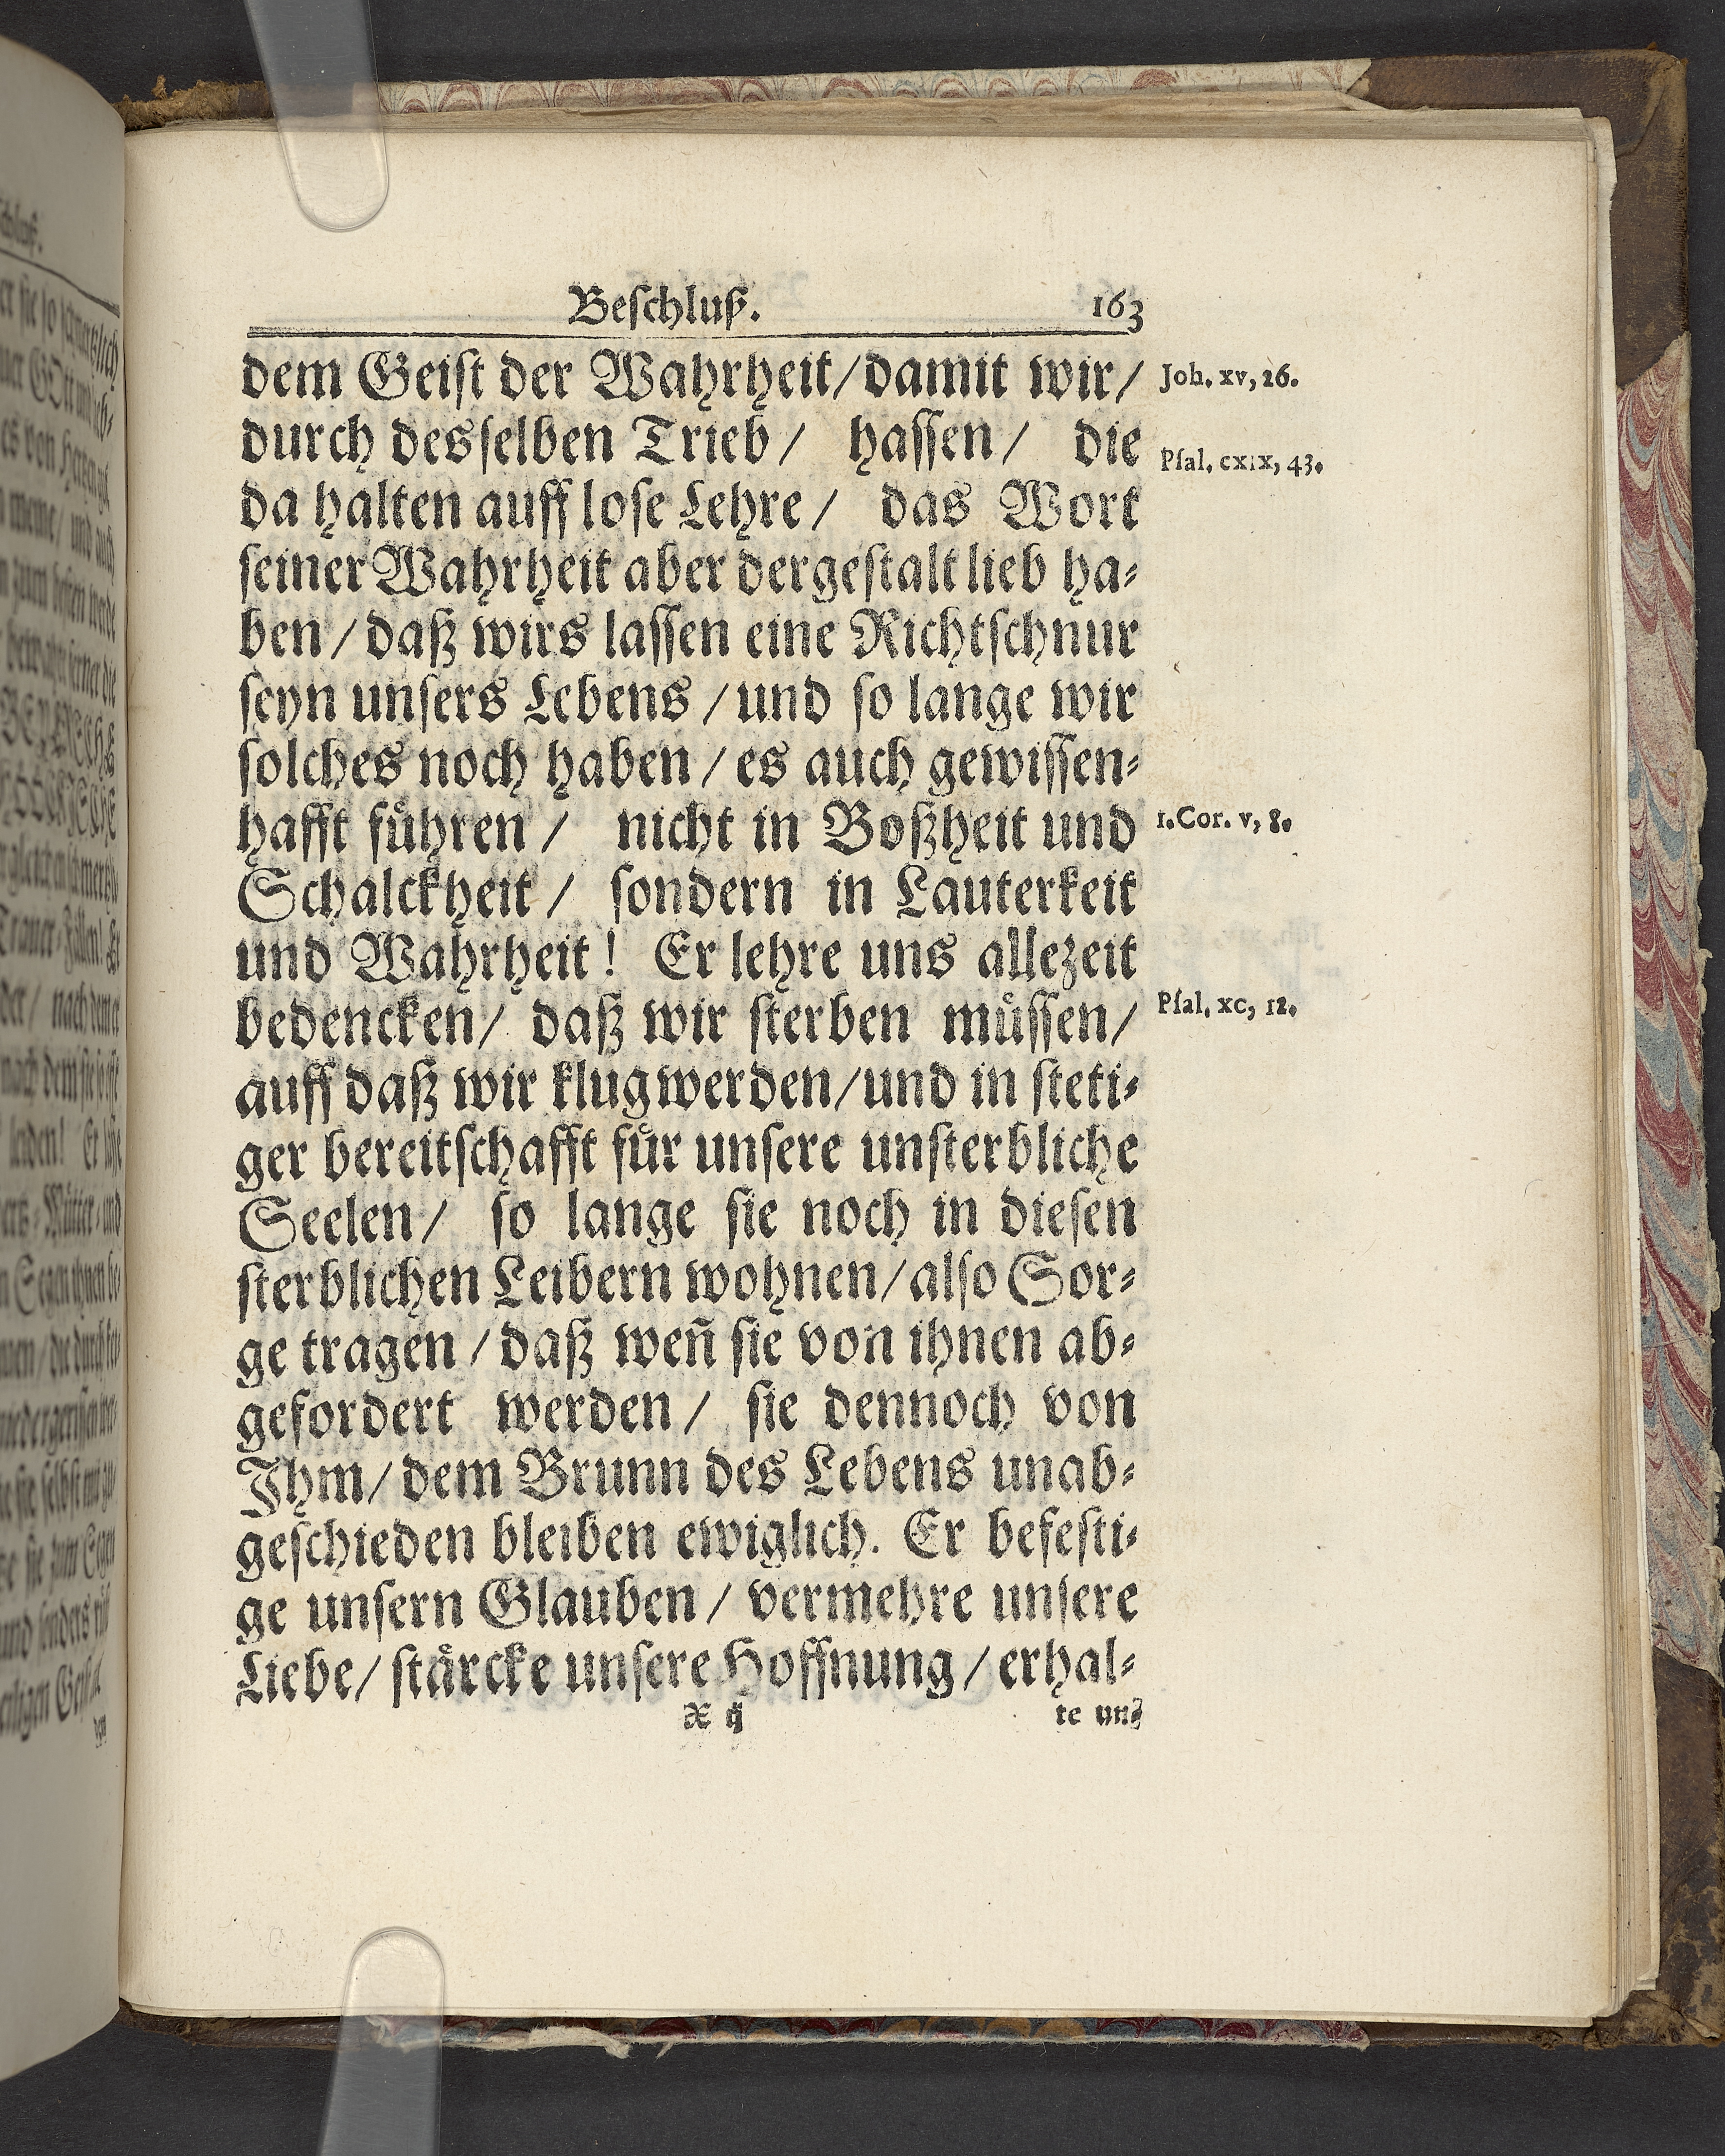 Beſchluß. 163
dem Geiſt der Wahrheit/damit wir/ Joh. xv, 26.
durch desſelben Trieb/ haſſen/ die Pſal. cxix, 43.
da halten auff loſe Lehre/ das Wort
ſeiner Wahrheit aber dergeſtalt lieb ha⸗
ben/daß wirs laſſen eine Richtſchnur
ſeyn unſers Lebens/und ſo lange wir
ſolches noch haben/es auch gewiſſen⸗
hafft fuͤhren/ nicht in Boßheit und 1.Cor. v, 8.
Schalckheit/ ſondern in Lauterkeit
und Wahrheit! Er lehre uns allezeit
bedencken/ daß wir ſterben muͤſſen/ Pſal. xc, 12.
auff daß wir klug werden/und in ſteti⸗
ger bereitſchafft fuͤr unſere unſterbliche
Seelen/ ſo lange ſie noch in dieſen
ſterblichen Leibern wohnen/alſo Sor⸗
ge tragen/daß weñ ſie von ihnen ab⸗
gefordert werden/ ſie dennoch von
Ihm/dem Brunn des Lebens unab⸗
geſchieden bleiben ewiglich. Er befeſti⸗
ge unſern Glauben/vermehre unſere
Liebe/ſtaͤrcke unſere Hoffnung/erhal⸗
X ij te uns